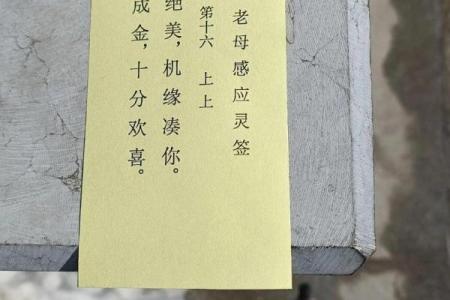 老母感应灵签
第十六 上上
绝美,机缘凑你。
成金,十分欢喜。